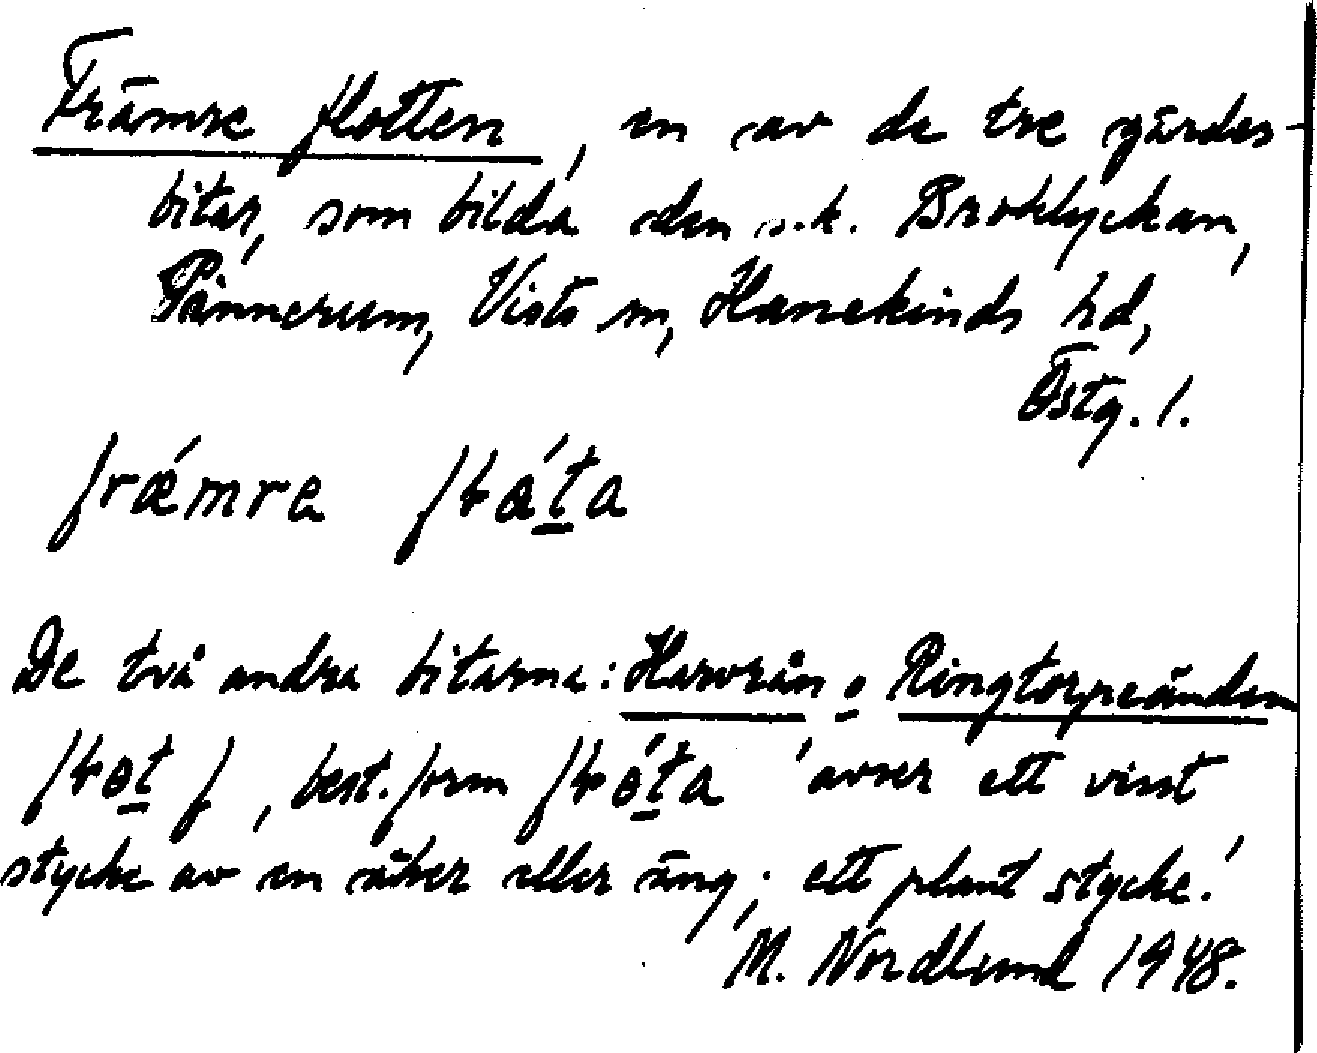 Främre flotten, en av de tre gärdes-
bitar, som bilda den s.k. Broklyckan,
Pännerum, Vists sn, Hanekinds hd,
Östg. l.
frǽmre fɫát̲a
De två andra bitarna: Harvrån o Ringtorpeänden
fɫot̲ f, best. form fɫót̲a 'avser ett visst
stycke av en åker eller äng; ett plant stycke.'
M. Nordlund 1948.